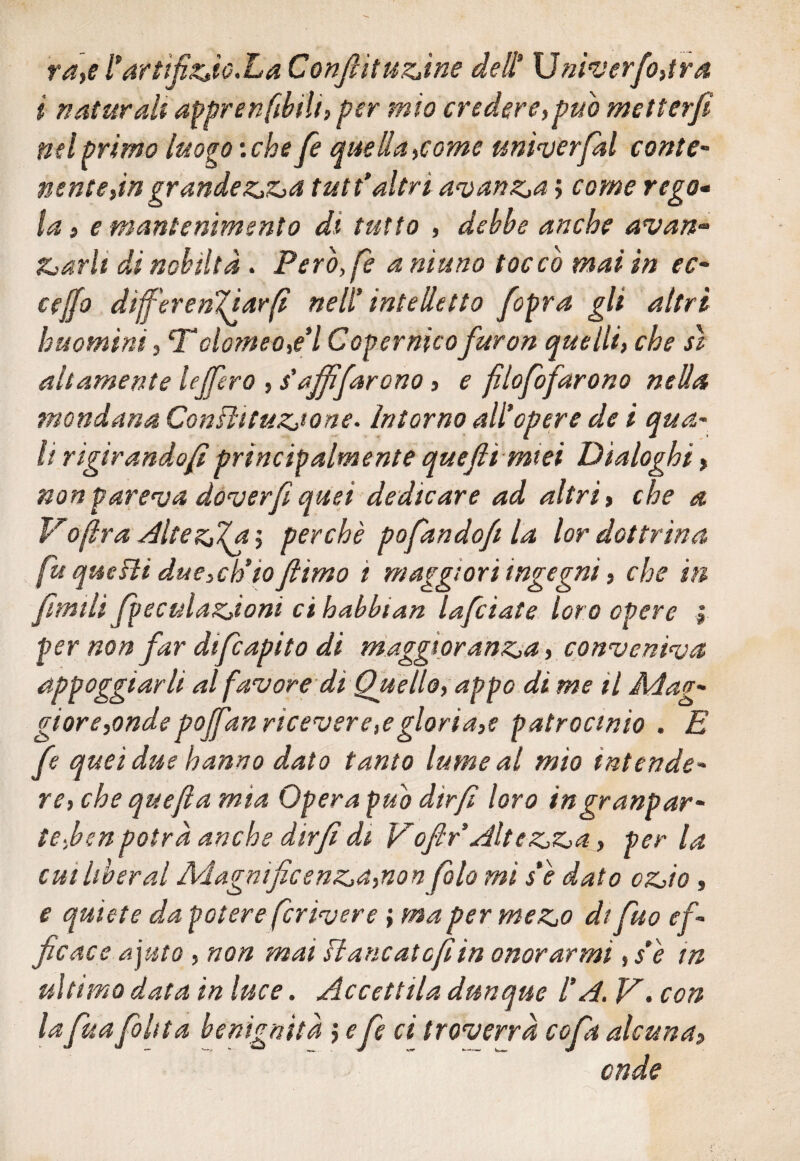 ra,e l'artifizio.La Conſtituzine dell' Univerſo,tra
i naturali apprenſibili, per mio credere, può metterſi
nel primo luogo: che ſe quella,come univerſal conte-
nente,in grandezza tutt'altri avanza; come rego-
la, e mantenimento di tutto, debbe anche avan-
zarli di nobiltà. Però, ſe a niuno toccò mai in ec-
ceſſo differenziarſi nell' intelletto ſopra gli altri
huomini, Tolomeo,e'l Copernico furon quelli, che sì
altamente leſſero, s'affiſarono, e filoſofarono nella
mondana Conſtituzione. Intorno all'opere de i qua-
li rigirandoſi principalmente queſti miei Dialoghi,
non pareva doverſi quei dedicare ad altri, che a
Voſtra Altezza; perchè poſandoſi la lor dottrina
ſu queſti due,ch'io ſtimo i maggiori ingegni, che in
ſimili ſpeculazioni ci habbian laſciate loro opere;
per non far diſcapito di maggioranza, conveniva
appoggiarli al favore di Quello, appo di me il Mag-
giore,onde poſſan ricevere,e gloria,e patrocinio. E
ſe quei due hanno dato tanto lume al mio intende-
re, che queſta mia Opera può dirſi loro in gran par-
te,ben potrà anche dirſi di Voſtr'Altezza, per la
cui liberal Magnificenza,non ſolo mi s'è dato ozio,
e quiete da potere ſcrivere; ma per mezo di ſuo ef-
ficace ajuto, non mai ſtancatoſi in onorarmi, s'è in
ultimo data in luce. Accettila dunque l'A. V. con
la ſua ſolita benignità; e ſe ci troverrà coſa alcuna,
onde